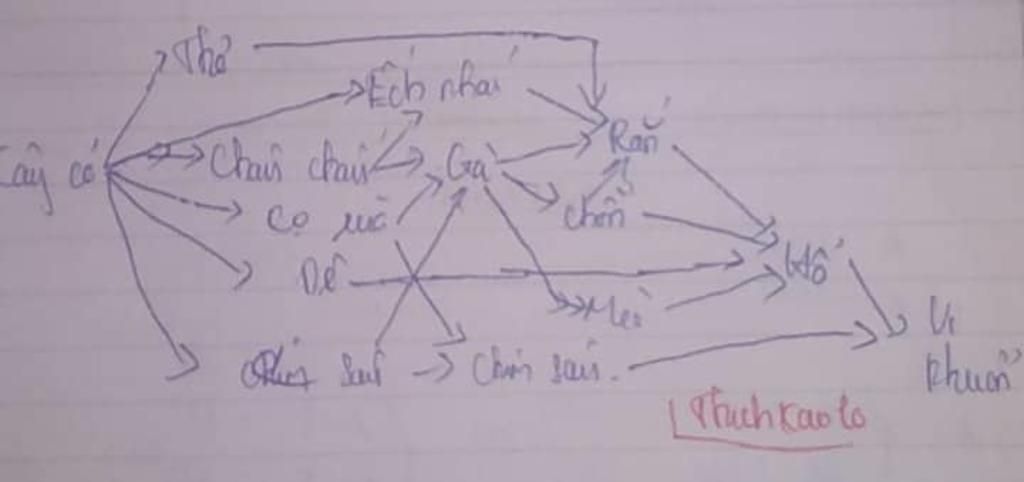 Thỏ
Ếch nhái
Rắn
Cây cỏ
Châu chấu
Gà
Chồn
Cọ rùa
Hổ
Dê
Mèo
Vi
khuẩn
sâu
Chim sâu.
Thichkaoto